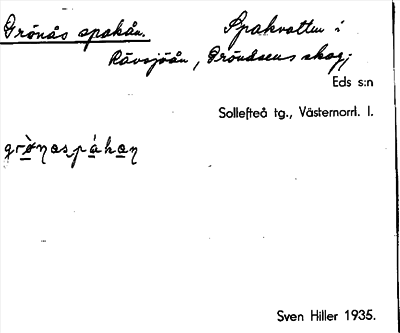 Grönås spakån. Spakvatten i
Rävsjöån, Gröndsens skog;
Eds s:n
Sollefteå tg., Västernorrl. l.
grò̱nas pá̱ka̱n
Sven Hiller 1935.